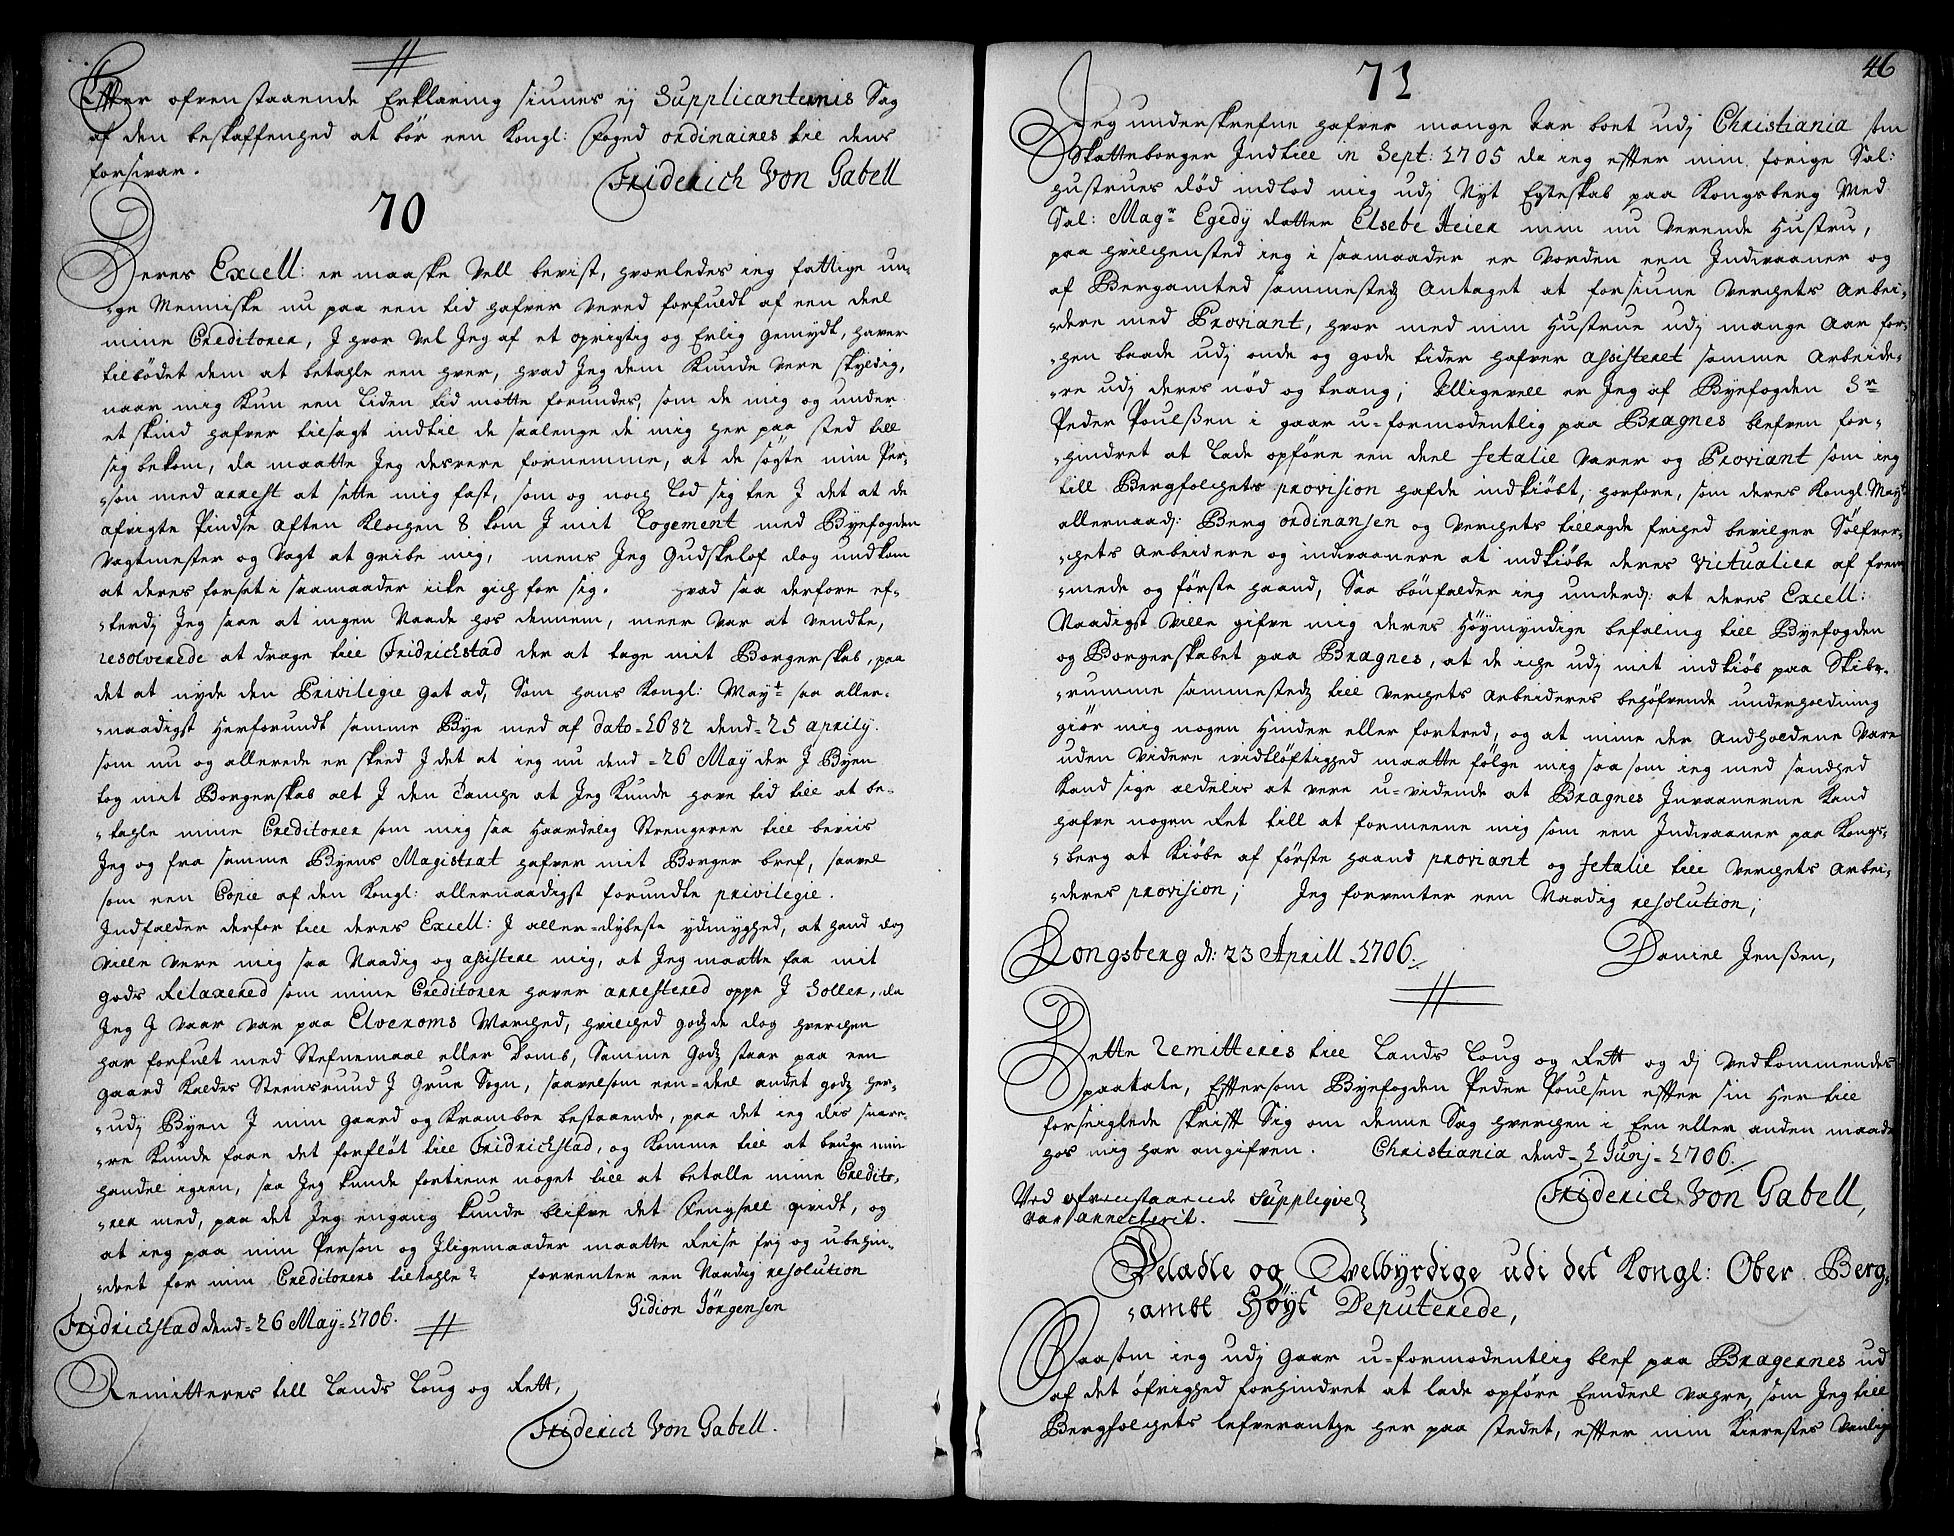 //
Efter ofrenstaaende Erklaring siunes ej Supplicanternis Sag
af den beskaffenhed at bör een Kongl: Foged ordinaires till dens
forsvar.
Friderich Von Gabell
70
Deres Excell: er maaske Vell bevist, hvorledes ieg fattige un-
-ge Menniske nu paa een tid hafver vered forfuldt af een deel
mine Creditorer, J hvor vel Jeg af et oprigtig og Erlig gemydt, haver
tilbödet dem at betahle een hver, hvad Jeg dem Kunde vere skyldig,
naar mig Kun een liden tid motte forundes, som de mig og under
et skind hafver tilsagt indtil de saalenge de mig her paa sted till
sig bekom, da maatte Jeg desvere fornemme, at de sögte min Per-
-son med arrest at sette mig fast, som og noch lod sig see J det at de
afvigte Pindse Aften Klochen 8 kom J mit Logement med Byefogden
Vagtmester og Vagt at gribe mig, mens Jeg Gudskelof dog undkom
at deres forset i saamaader icke gich for sig. Hvad saa derfore ef-
-terdj Jeg saae at ingen Naade hos dennem, meer var at vendte,
resolverede at drage till Fridrichstad der at tage mit Borgerskab, paa
det at nyde den Privilegie got ad, Som hans Kongl: Mayt saa aller-
-naadigst Herforundt samme Bye med af dato = 1682 dend = 25 aprily.
som nu og allerede er skeed J det at ieg nu dend = 26 May der J Byen
tog mit Borgerskab alt J den tanche at Jeg Kunde have tid till at be-
-tahle mine Creditorer som mig saa Haardelig Strengerer till beviis
Jeg og fra samme Byens Magistrat hafver mit Borger bref, saavel
som een Copie af den Kongl: allernaadigst forundte privilegie.
Indfalder derfor till deres Excell: J aller=dybeste ydmyghed, at hand dog
ville vere mig saa Naadig og assistere mig, at Jeg maatte faa mit
gods Relaxered som mine Creditorer haver arrestered oppe J Soller, da
Jeg J Vaar var paa Elveroms Marched, hvilched godz de dog hverchen
har forfult med Stefnemaal eller Domb, Samme Godz staar paa een
gaard Kaldes Steensruud J Grue Sogn, saavelsom een=deel andet godz her-
-udj Byen J min gaard og Kramboe bestaaende, paa det ieg dis snare-
-re Kunde faae det forfløt till Fridrichstad, og Komme till at bruge min
handel igien, saa Jeg kunde fortiene noget till at betalle mine Credito-
-rer med, paa det Jeg engang kunde blifve det Fengsell qvidt, og
at ieg paa min Person og Jligemaader maatte Reise frj og ubehin-
-dret for min Creditorers tiltahle? forventer een Naadig resolution
Gidion Jörgensen
Fridrichstad dend = 26 May = 1706.
//
Remitteres till Lands Loug og Rett,
Friderich Von Gabell.
46
71
Jeg underskrefne hafver mange Aar boet udj Christiania som
Skatteborger Indtill in Sept: 1705 da ieg efter min forige Sal:
hustrues död indlod mig udj Nyt Egteskab paa Kongsberg Med
Sal: Magr Egedy datter Elsebe Heier min nu Verende Hustru,
paa hvilchensted ieg i saamaader er vorden een Indvaaner og
af Bergamted sammestedz Antaget at forsiune Verchets Arbei-
-dere med Proviant, hvor med min Hustrue udj mange Aar for-
-hen baade udj onde og gode tider hafver assisteret samme Arbeide-
-re udj deres nöd og trang; Alligevell er Jeg af Byefogden Sr
Peder Poulßen i gaar u=formodentlig paa Bragnes blefven for-
-hindret at lade opföre een deel fetalie varer og Proviant som ieg
till Bergfolchets provision hafde indkiöbt, horfore, som deres Kongl. Mayts
allernaads: Berg ordinansen og Verchets tillagde frihed bevilger Sölfver-
-chets Arbeidere og indvaanere at indkiöbe deres Victualier af frem-
-mede og förste haand, Saa bönfalder ieg underd: at deres Excell:
Naadigst ville gifve mig deres Höymyndige befaling till Byefogden
og Borgerskabet paa Bragnes, at de iche udj mit indkiöb paa Skibs-
-rumme sammestedz till Verchets Arbeideres behöfvende underholdning
giör mig nogen Hinder eller fortred, og at mine der Andholdene Vare
uden videre vidtlöftighed maatte fölge mig saa som ieg med sandhed
kand sige aldelis at vere u=vidende at Bragnes Invaanerne kand
hafve nogen Ret till at formeene mig som een Indvaaner paa Kongs-
-berg at kiöbe af förste haand proviant og fetalie till Verchets Arbei-
-deres provision; Jeg forventer een Naadig resolution;
Kongsberg d: 23 Aprill = 1706.
Daniel Jenßen,
//
Dette Remitteris till Lands Loug og Rett og dj Vedkommendes
paatale, Eftersom Byefogden Peder Poulsen efter sin Her till
forseiglede skrift Sig om denne Sag hverchen i Een eller anden maade
hos mig har angifven. Christiania dend = 1 Junj = 1706.
Friderich Von Gabell,
Ved ofvenstaaende Suppliqve
var annecterit.
Veladle og Velbyrdige udi det Kongl: Ober Berg-
-ambt Höyt Deputerede,
Saasom ieg udj Gaar u=formodentlig blef paa Bragernes ud
af det öfrighed forhindret at lade opföre Eendeel vahre, som Jeg till
Bergfolchets lefverantze her paa stedet, efter min Kierestes Vanlige